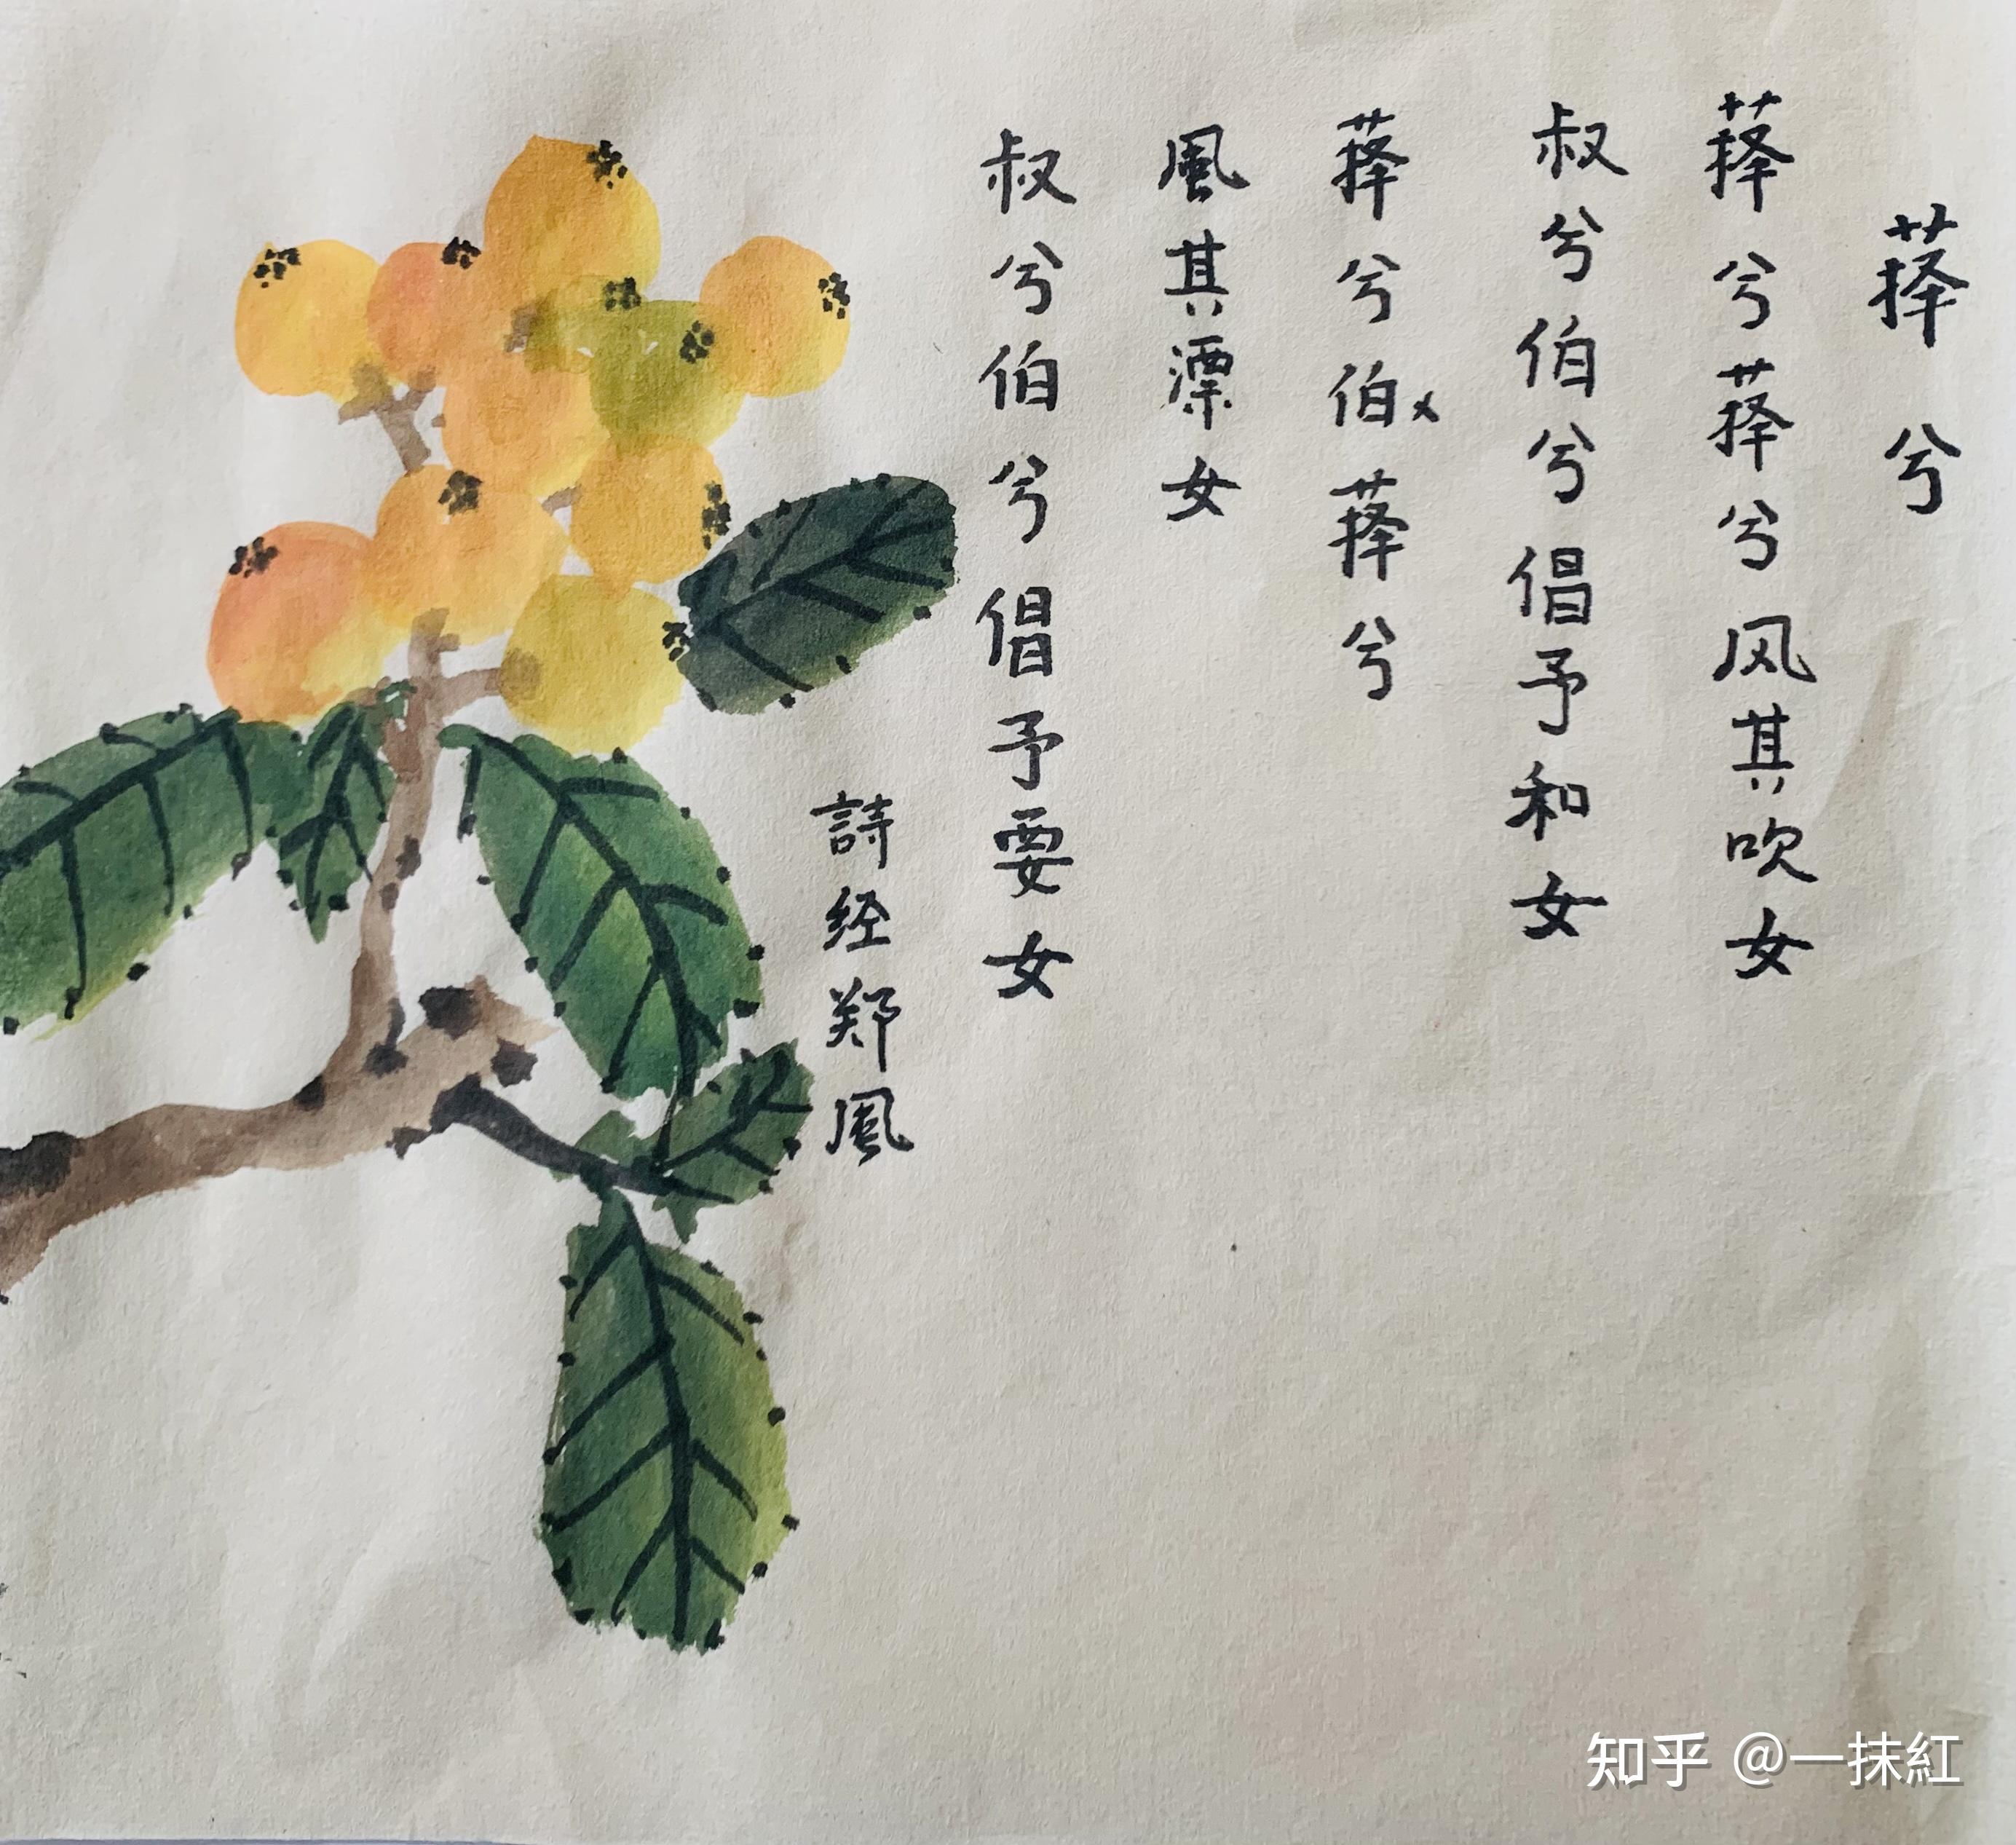 萚兮
萚兮萚兮风其吹女
叔兮伯兮倡予和女
萚兮伯萚兮
風其漂女
叔兮伯兮倡予要女
詩经郑風
知乎 @一抹紅